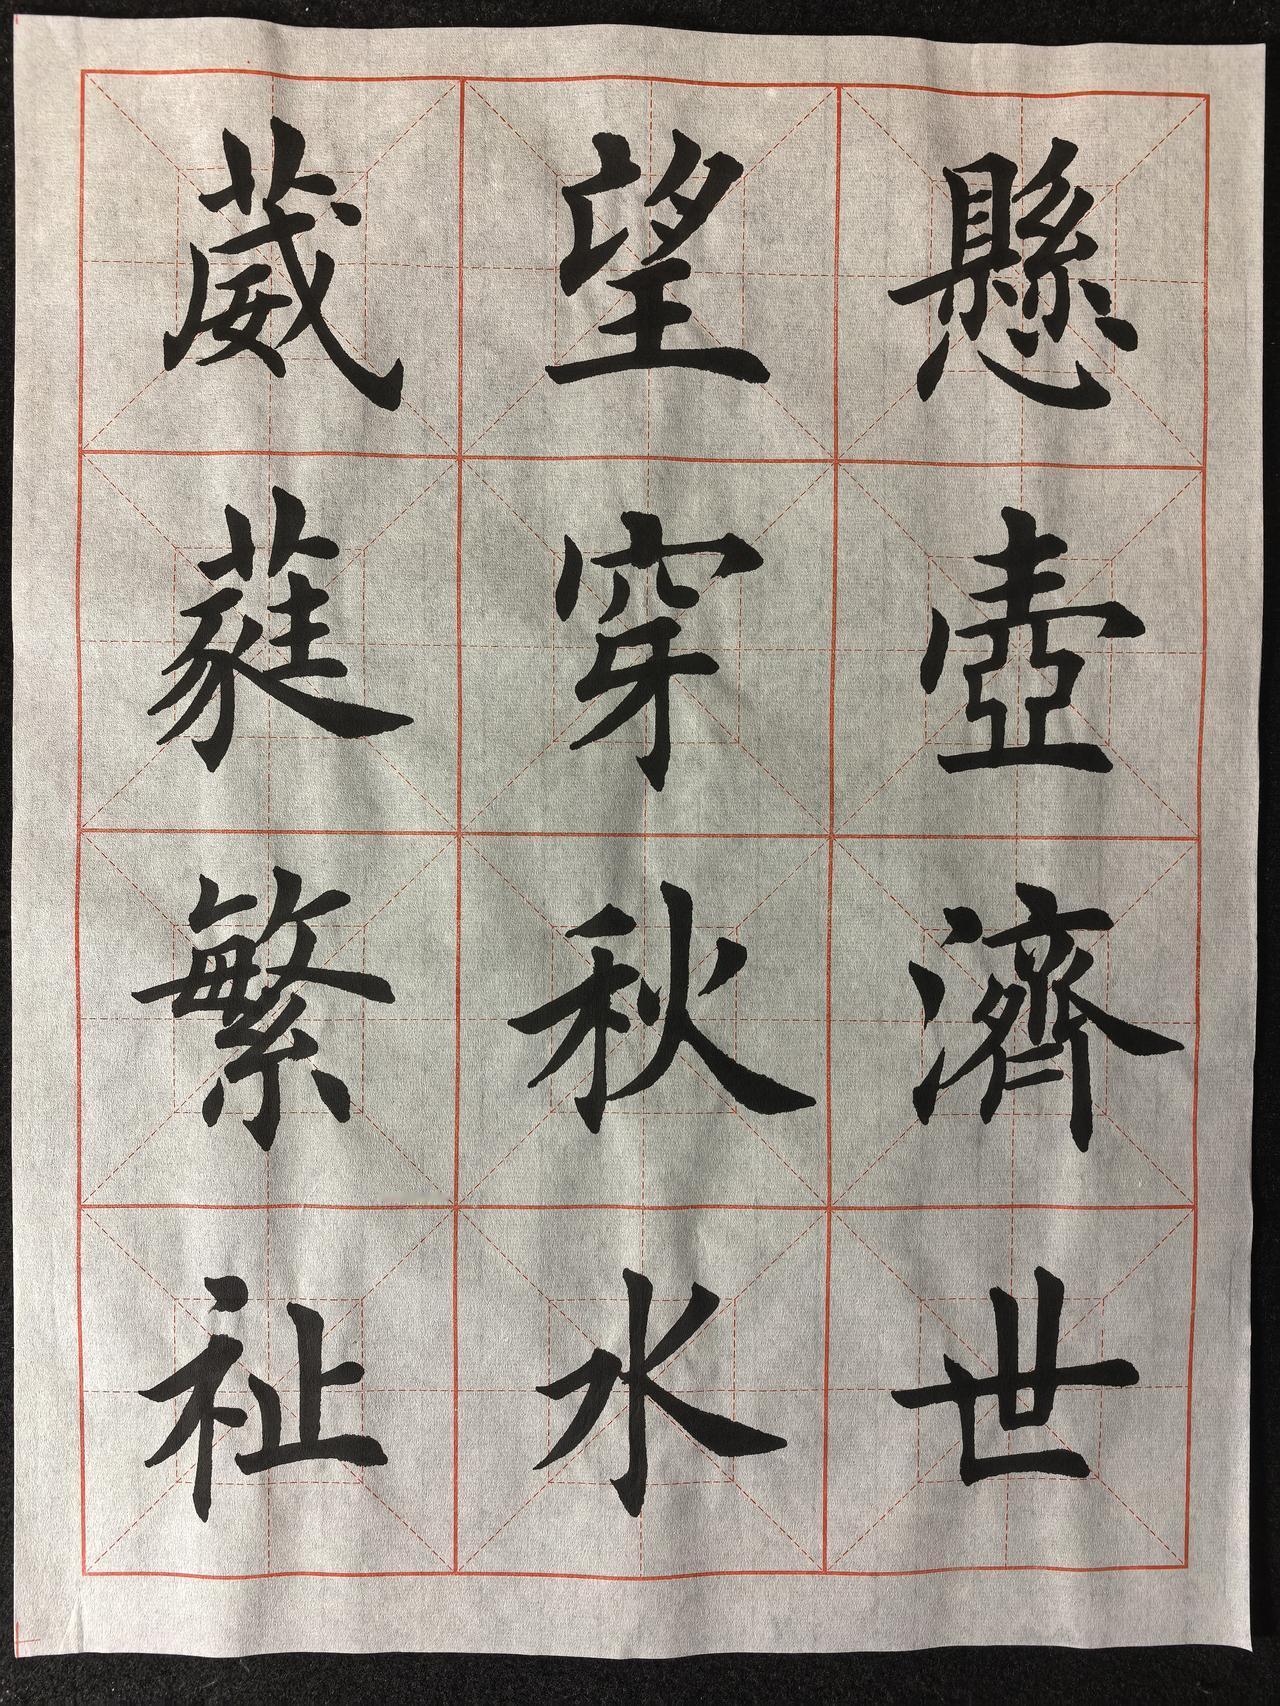 懸壺濟世
望穿秋水
葳蕤繁祉